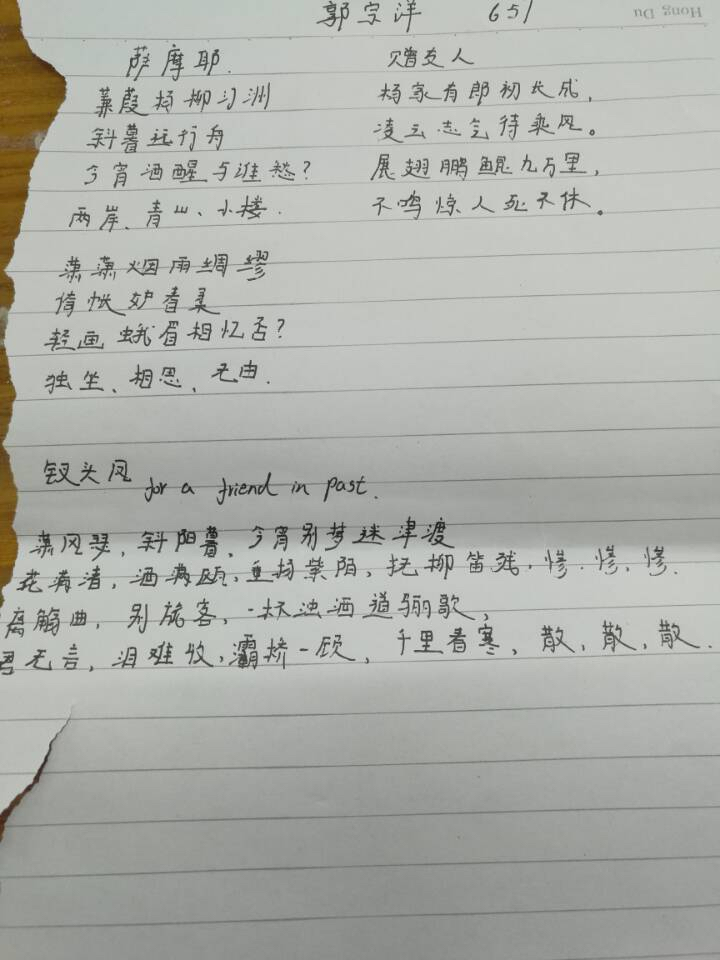 Hong Du
郭字洋 651
萨摩耶.
蒹葭杨柳汀洲
斜暮远行舟
今宵酒醒与谁愁?
两岸、青山、小楼.
潇潇烟雨绸缪
倚帐妒春柔
轻画蛾眉相忆否?
独坐、相思、无由.
赠友人
杨家有郎初长成,
凌云志气待乘风。
展翅鹏鲲九万里,
不鸣惊人死不休。
钗头凤 for a friend in past.
萧风瑟, 斜阳暮, 今宵别梦迷津渡
花满渚, 酒满瓯, 垂杨紫陌, 抚柳笛残. 惨. 惨. 惨.
离觞曲, 别旅客, 一杯浊酒道骊歌,
君无言, 泪难收, 灞桥一顾, 千里春寒, 散, 散, 散.